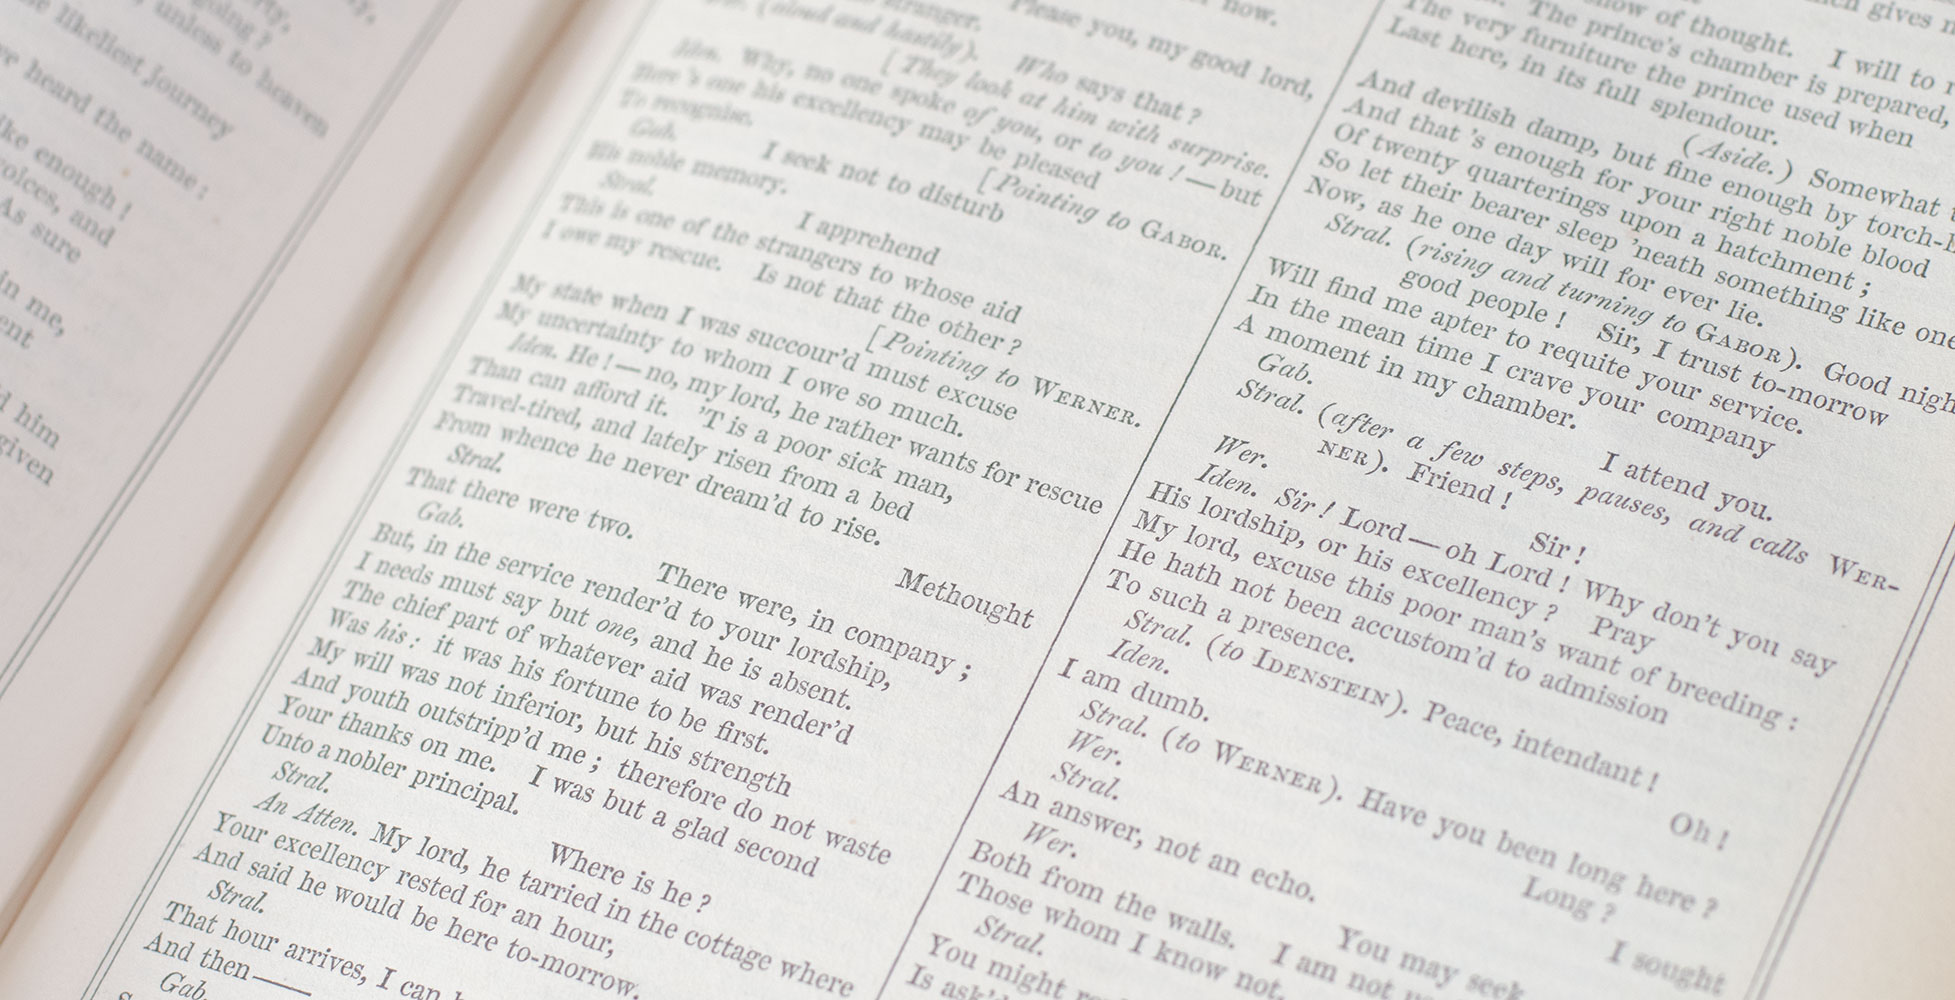 going?
unless to heaven
likeliest journey
heard the name:
enough!
voices, and
As sure
in me,
him
given
now.
Please you, my good lord,
stranger.
(aloud and hastily). Who says that?
[They look at him with surprise.
Iden. Why, no one spoke of you, or to you!—but
Here's one his excellency may be pleased
To recognise. [Pointing to GABOR.
Gab. I seek not to disturb
His noble memory.
Stral. I apprehend
This is one of the strangers to whose aid
I owe my rescue. Is not that the other?
[Pointing to WERNER.
My state when I was succour'd must excuse
My uncertainty to whom I owe so much.
Iden. He!—no, my lord, he rather wants for rescue
Than can afford it. 'T is a poor sick man,
Travel-tired, and lately risen from a bed
From whence he never dream'd to rise.
Stral. Methought
That there were two.
Gab. There were, in company;
But, in the service render'd to your lordship,
I needs must say but one, and he is absent.
The chief part of whatever aid was render'd
Was his: it was his fortune to be first.
My will was not inferior, but his strength
And youth outstripp'd me; therefore do not waste
Your thanks on me. I was but a glad second
Unto a nobler principal.
Stral. Where is he?
An Atten. My lord, he tarried in the cottage where
Your excellency rested for an hour,
And said he would be here to-morrow.
Stral.
That hour arrives, I can
And then——
Gab.
gives
of thought. I will to
The very furniture the prince's chamber is prepared,
The very furniture the prince used when
Last here, in its full splendour.
(Aside.) Somewhat
And devilish damp, but fine enough by torch-
And that 's enough for your right noble blood
Of twenty quarterings upon a hatchment;
So let their bearer sleep 'neath something like one
Now, as he one day will for ever lie.
Stral. (rising and turning to GABOR). Good
good people! Sir, I trust to-morrow
Will find me apter to requite your service.
In the mean time I crave your company
A moment in my chamber.
Gab. I attend you.
Stral. (after a few steps, pauses, and calls WER-
NER). Friend!
Wer. Sir!
Iden. Sir! Lord—oh Lord! Why don't you say
His lordship, or his excellency? Pray
My lord, excuse this poor man's want of breeding:
He hath not been accustom'd to admission
To such a presence.
Stral. (to IDENSTEIN). Peace, intendant!
Iden. Oh!
I am dumb.
Stral. (to WERNER). Have you been long here?
Wer. Long?
Stral. I sought
An answer, not an echo.
Wer. You may seek
Both from the walls. I am not
Those whom I know not.
Stral.
You might
Is ask'd